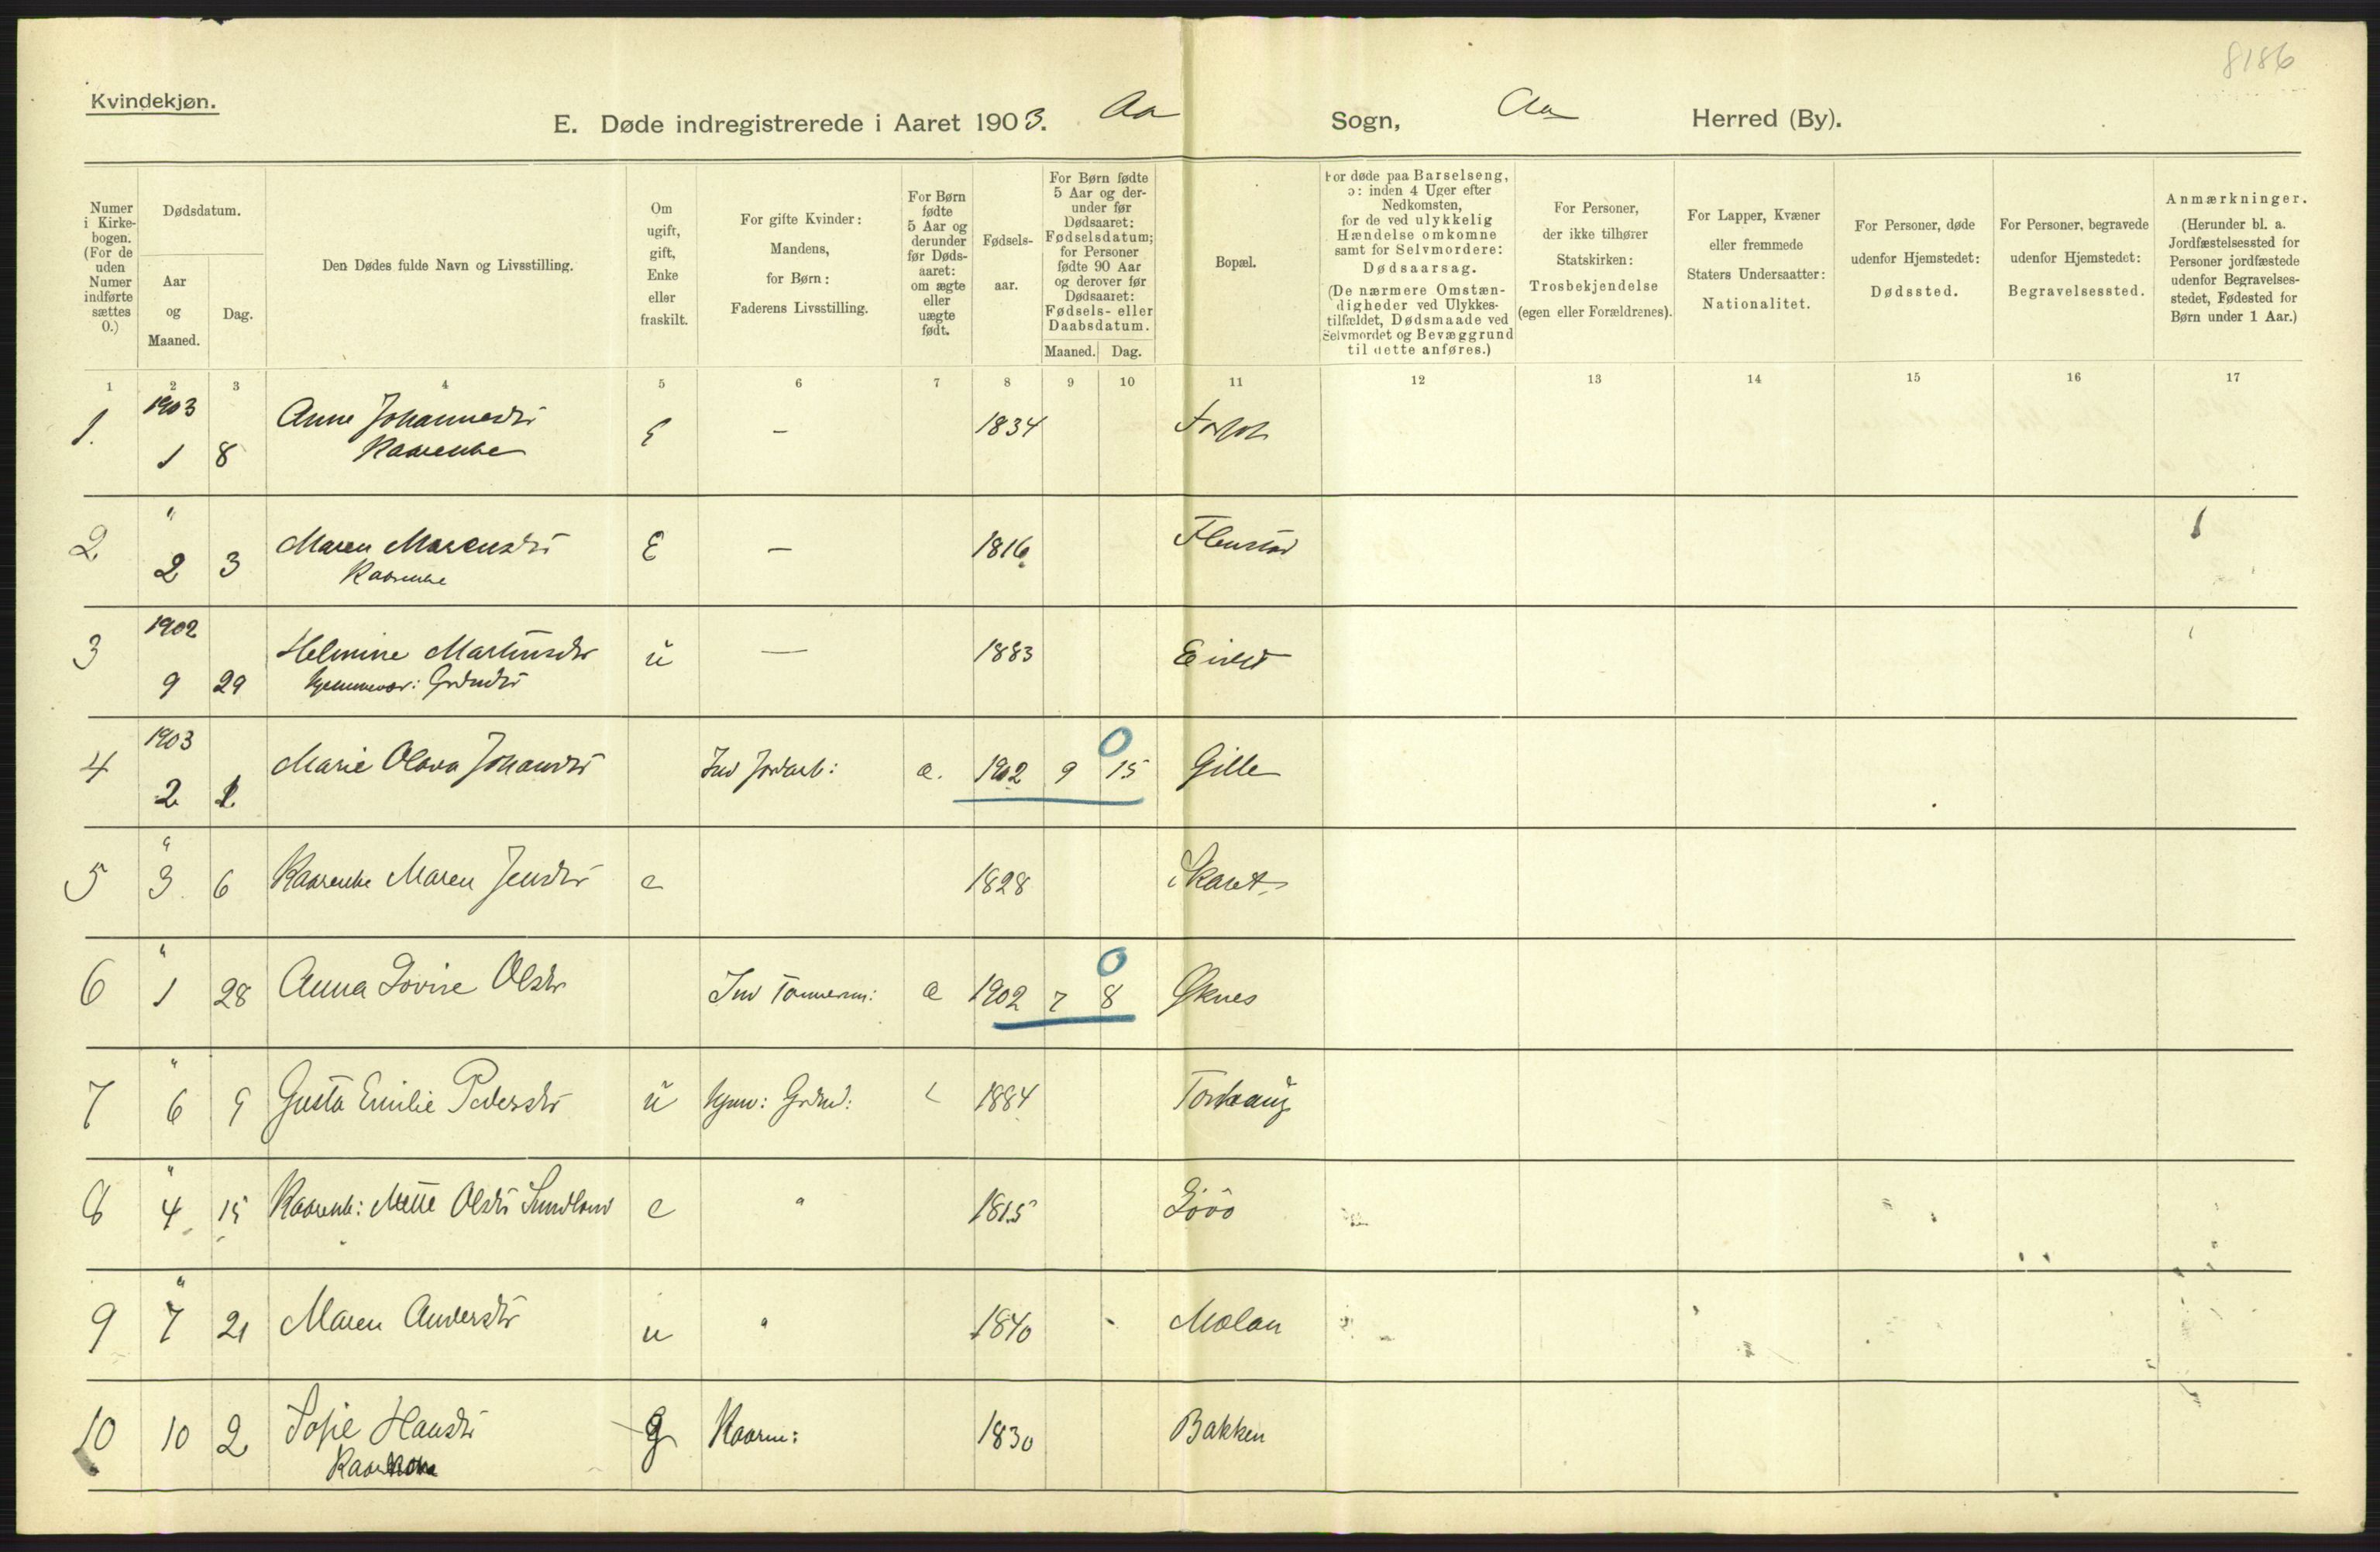 8186
Kvindekjøn.
E. Døde indregistrerede i Aaret 1903. Aa Sogn, Aa Herred (By).
Numer i Kirkebogen. (For de uden Numer indførte sættes 0.)
Dødsdatum.
Aar og Maaned.
Dag.
Den Dødes fulde Navn og Livsstilling.
Om ugift, gift, Enke eller fraskilt.
For gifte Kvinder: Mandens, for Børn: Faderens Livsstilling.
For Børn fødte 5 Aar og derunder før Dødsaaret: om ægte eller uægte født.
Fødselsaar.
For Børn fødte 5 Aar og derunder før Dødsaaret: Fødselsdatum; for Personer fødte 90 Aar og derover før Dødsaaret: Fødsels- eller Daabsdatum.
Maaned. Dag.
Bopæl.
For døde paa Barselseng, ɔ: inden 4 Uger efter Nedkomsten, for de ved ulykkelig Hændelse omkomne samt for Selvmordere: Dødsaarsag. (De nærmere Omstændigheder ved Ulykkestilfældet, Dødsmaade ved Selvmordet og Bevæggrund til dette anføres.)
For Personer, der ikke tilhører Statskirken: Trosbekjendelse (egen eller Forældrenes).
For Lapper, Kvæner eller fremmede Staters Undersaatter: Nationalitet.
For Personer, døde udenfor Hjemstedet: Dødssted.
For Personer, begravede udenfor Hjemstedet: Begravelsessted.
Anmærkninger. (Herunder bl. a. Jordfæstelsessted for Personer jordfæstede udenfor Begravelsesstedet, Fødested for Børn under 1 Aar.)
1 2 3 4 5 6 7 8 9 10 11 12 13 14 15 16 17
1. 1903 1 8 Anne Johannesdtr Kaarenke E – 1834
2 " 2 3 Maren Marensdtr Kaarenke E – 1816 Flenstad
3 1902 9 29 Helmine Martinsdtr u — 1883
4 1903 2 1 Marie Olava Johansdtr Ind Jordarb: æ. 1902 9 15 Gille 0
5 " 3 6 Kaarenke Maren Jensdtr e 1828 Skaret
6 " 1 28 Anna Lovise Olsdtr Ind Tømmerm: æ 1902 7 8 Øknes 0
7 " 6 9 Gusta Emilie Pedersdtr u Hjmv: Grdmd: 1884
8 " 4 15 Kaarenk: Mette Olsdtr Sundland e " 1815 Lövö
9 " 7 21 Maren Andersdtr u " 1840 Molan
10 10 2 Sofie Hansdtr Kaarkona g Kaarm: 1830 Bakken